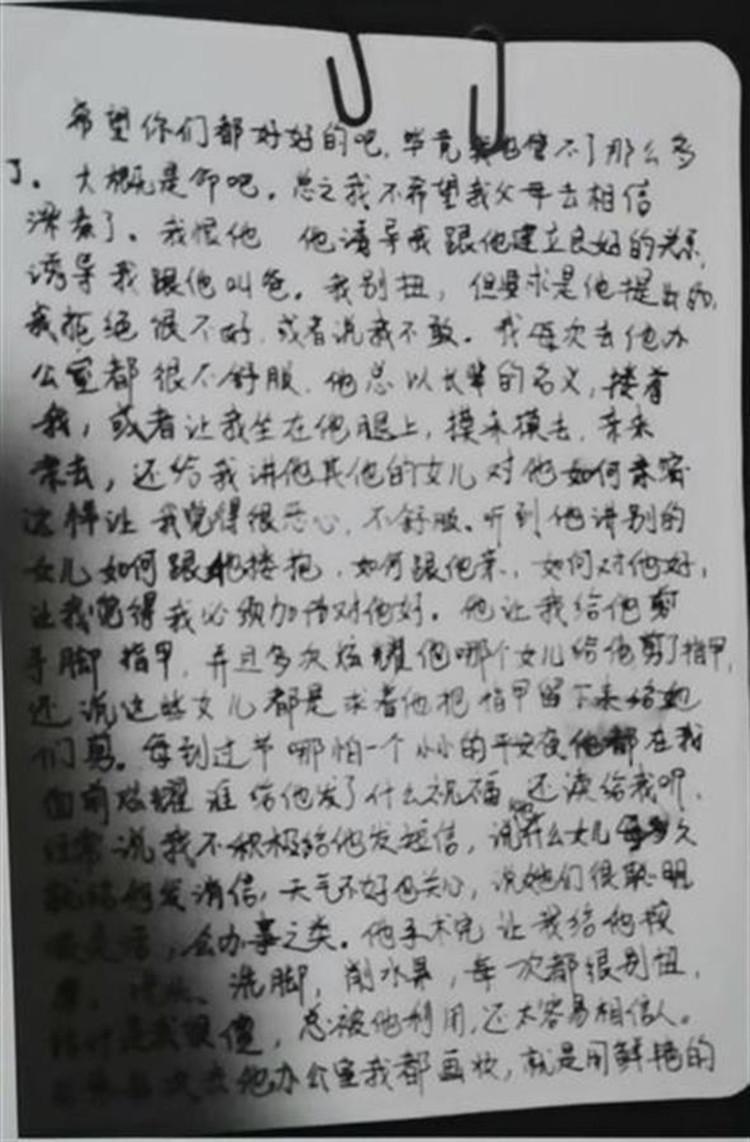 希望你们都好好的吧，毕竟我也管不了那么多
了。大概是命吧。总之我不希望我父母去相信
了。我恨他 他诱导我跟他建立良好的关系，
诱导我跟他叫爸。我别扭，但要求是他提出的，
我拒绝很不好，或者说我不敢。我每次去他办
公室都很不舒服，他总以长辈的名义，搂着
我，或者让我坐在他腿上，摸来摸去，亲来
亲去，还给我讲他其他的女儿对他如何亲密
这样让我觉得很恶心，不舒服。听到他讲别的
女儿如何跟他搂抱，如何跟他亲，如何对他好，
让我觉得我必须加倍对他好。他让我给他剪
手脚指甲，并且多次炫耀他哪个女儿给他剪了指甲，
还说这些女儿都是求着他把指甲留下来给她
们剪。每到过节哪怕一个小小的平安夜他都在我
面前炫耀谁给他发了什么祝福，还读给我听，
经常说我不积极给他发短信，说什么女儿每多久
就给他发消息，天气不好也关心，说她们很聪明
会办事之类。他手术完让我给他按
洗脚，削水果，每一次都很别扭，
估计是我很傻，总被他利用，还太容易相信人。
每次去他办公室我都画妆，就是用鲜艳的